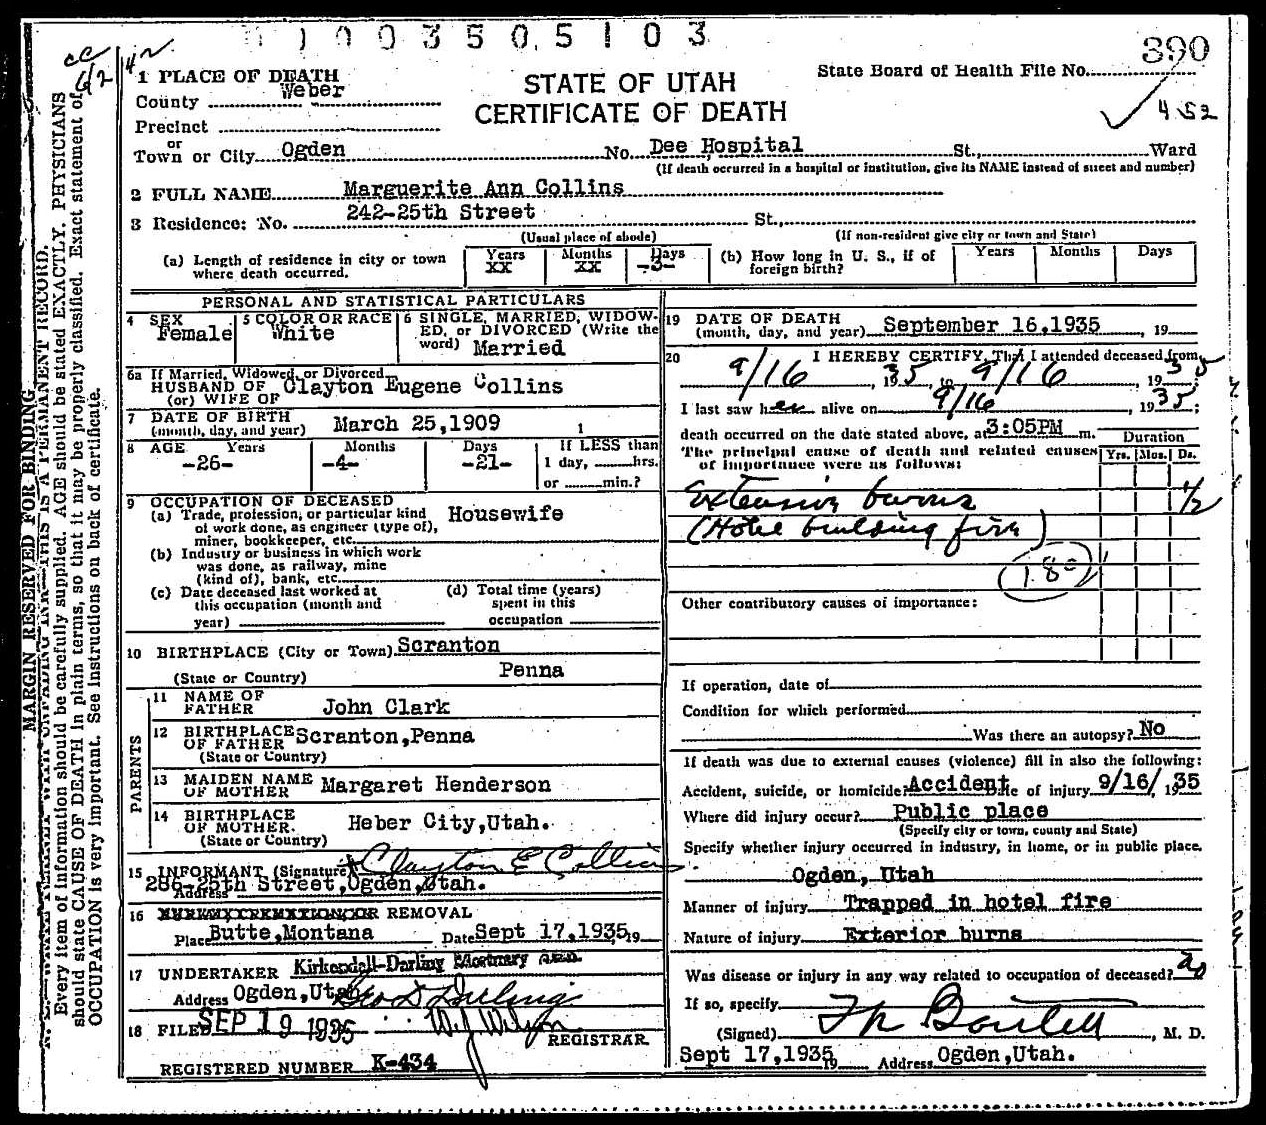 1003505103
390
1 PLACE OF DEATH
County Weber
STATE OF UTAH
CERTIFICATE OF DEATH
State Board of Health File No.
452
Precinct
or
Town or City Ogden No. Dee Hospital St., Ward
(If death occurred in a hospital or institution, give its NAME instead of street and number)
2 FULL NAME Marguerite Ann Collins
3 Residence: No. 242-25th Street St.,
(Usual place of abode) (If non-resident give city or town and State)
(a) Length of residence in city or town where death occurred. Years XX Months XX Days -3-
(b) How long in U. S., if of foreign birth? Years Months Days
PERSONAL AND STATISTICAL PARTICULARS
4 SEX Female
5 COLOR OR RACE White
6 SINGLE, MARRIED, WIDOWED, or DIVORCED (Write the word) Married
6a If Married, Widowed, or Divorced
HUSBAND OF Clayton Eugene Collins
(or) WIFE OF
7 DATE OF BIRTH
(month, day, and year) March 25,1909
8 AGE Years -26- Months -4- Days -21-
If LESS than
1 day, hrs.
or min.?
9 OCCUPATION OF DECEASED
(a) Trade, profession, or particular kind of work done, as engineer (type of), miner, bookkeeper, etc. Housewife
(b) Industry or business in which work was done, as railway, mine (kind of), bank, etc.
(c) Date deceased last worked at this occupation (month and year)
(d) Total time (years) spent in this occupation
10 BIRTHPLACE (City or Town) Scranton
(State or Country) Penna
PARENTS
11 NAME OF FATHER John Clark
12 BIRTHPLACE OF FATHER Scranton,Penna
(State or Country)
13 MAIDEN NAME OF MOTHER Margaret Henderson
14 BIRTHPLACE OF MOTHER. Heber City,Utah.
(State or Country)
15 INFORMANT (Signature) Clayton E Collins
Address 286-25th Street,Ogden,Utah.
16 REMOVAL
Place Butte,Montana Date Sept 17,1935, 19
17 UNDERTAKER Kirkendall-Darling Mortuary
Address Ogden,Utah Geo D Darling
18 FILED SEP 19 1935 W J Wilson
REGISTRAR
REGISTERED NUMBER K-434
19 DATE OF DEATH
(month, day, and year) September 16,1935, 19
20 I HEREBY CERTIFY, That I attended deceased from
9/16, 1935, to 9/16, 1935;
I last saw her alive on 9/16, 1935;
death occurred on the date stated above, at 3:05PM m.
The principal cause of death and related causes of importance were as follows:
Duration
Yrs. Mos. Ds.
Extensive burns 1/2
(Hotel building fire)
180
Other contributory causes of importance:
If operation, date of
Condition for which performed
Was there an autopsy? No
If death was due to external causes (violence) fill in also the following:
Accident, suicide, or homicide? Accident Date of injury 9/16/, 1935
Where did injury occur? Public place
(Specify city or town, county and State)
Specify whether injury occurred in industry, in home, or in public place.
Ogden, Utah
Manner of injury Trapped in hotel fire
Nature of injury Exterior burns
Was disease or injury in any way related to occupation of deceased? no
If so, specify
(Signed) Bartlett, M. D.
Sept 17,1935 19 Address Ogden,Utah.
MARGIN RESERVED FOR BINDING
THIS IS A PERMANENT RECORD.
Every item of information should be carefully supplied. AGE should be stated EXACTLY. PHYSICIANS
should state CAUSE OF DEATH in plain terms, so that it may be properly classified. Exact statement of
OCCUPATION is very important. See instructions on back of certificate.